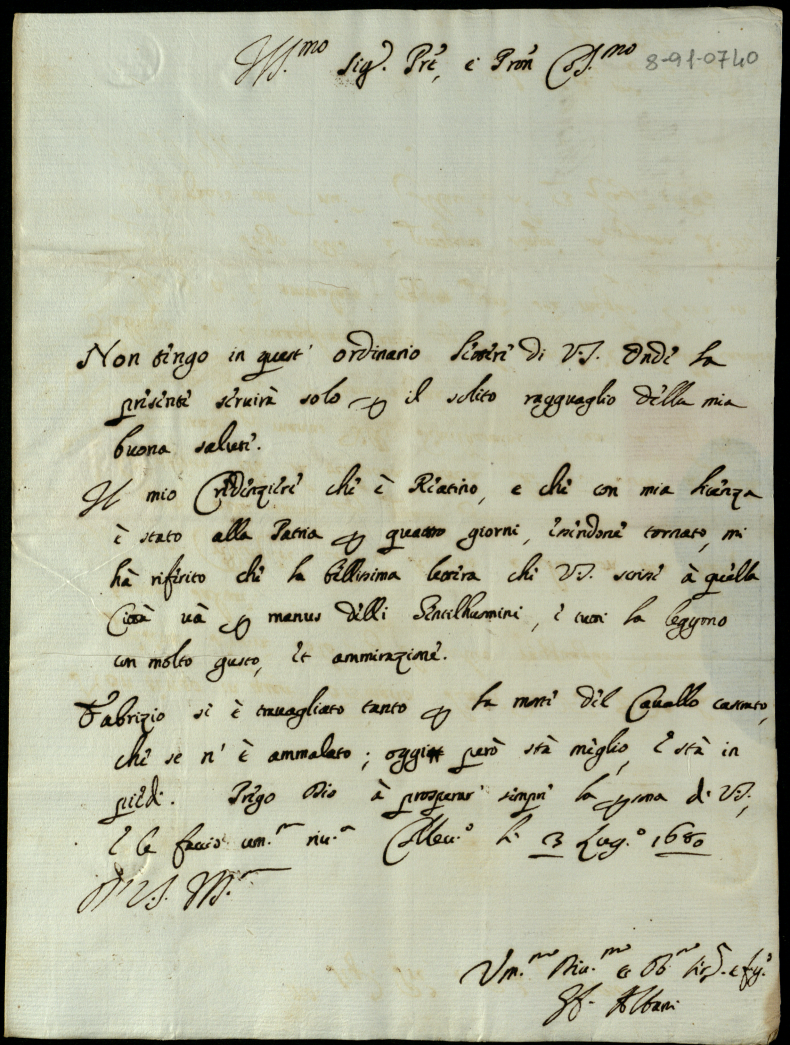 Ill.mo Sig.r Prē, e Pron Col.mo
8-91-0740
Non tengo in quest' ordinario lettere di V.S. Onde la
presente servirà solo per il solito ragguaglio della mia
buona salute.
Il mio Credenziere che è Reatino, e che con mia licenza
è stato alla Patria per quattro giorni, essendone tornato, mi
hà riferito che la bellissima lettera che V.S. scrisse à quella
Città và per manus delli Gentilhuomini, e tutti la leggono
con molto gusto, et ammirazione.
Fabrizio si è travagliato tanto per la morte del Cavallo castrato,
che se n' è ammalato; oggi però stà meglio, e stà in
piedi. Prego Dio à prosperar sempre la persona di V.S.,
e le faccio um.ma riu.a Collev.o li 3 Lug.o 1680
D V.S. Ill.ma
Um.mo Diu.mo et Ob.mo
Albani